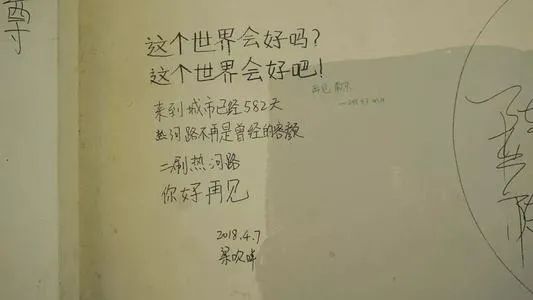 尊
这个世界会好吗？
这个世界会好吧！
来到城市已经582天
热河路不再是曾经的容颜
二刷热河路
你好再见
2018.4.7
再见南京